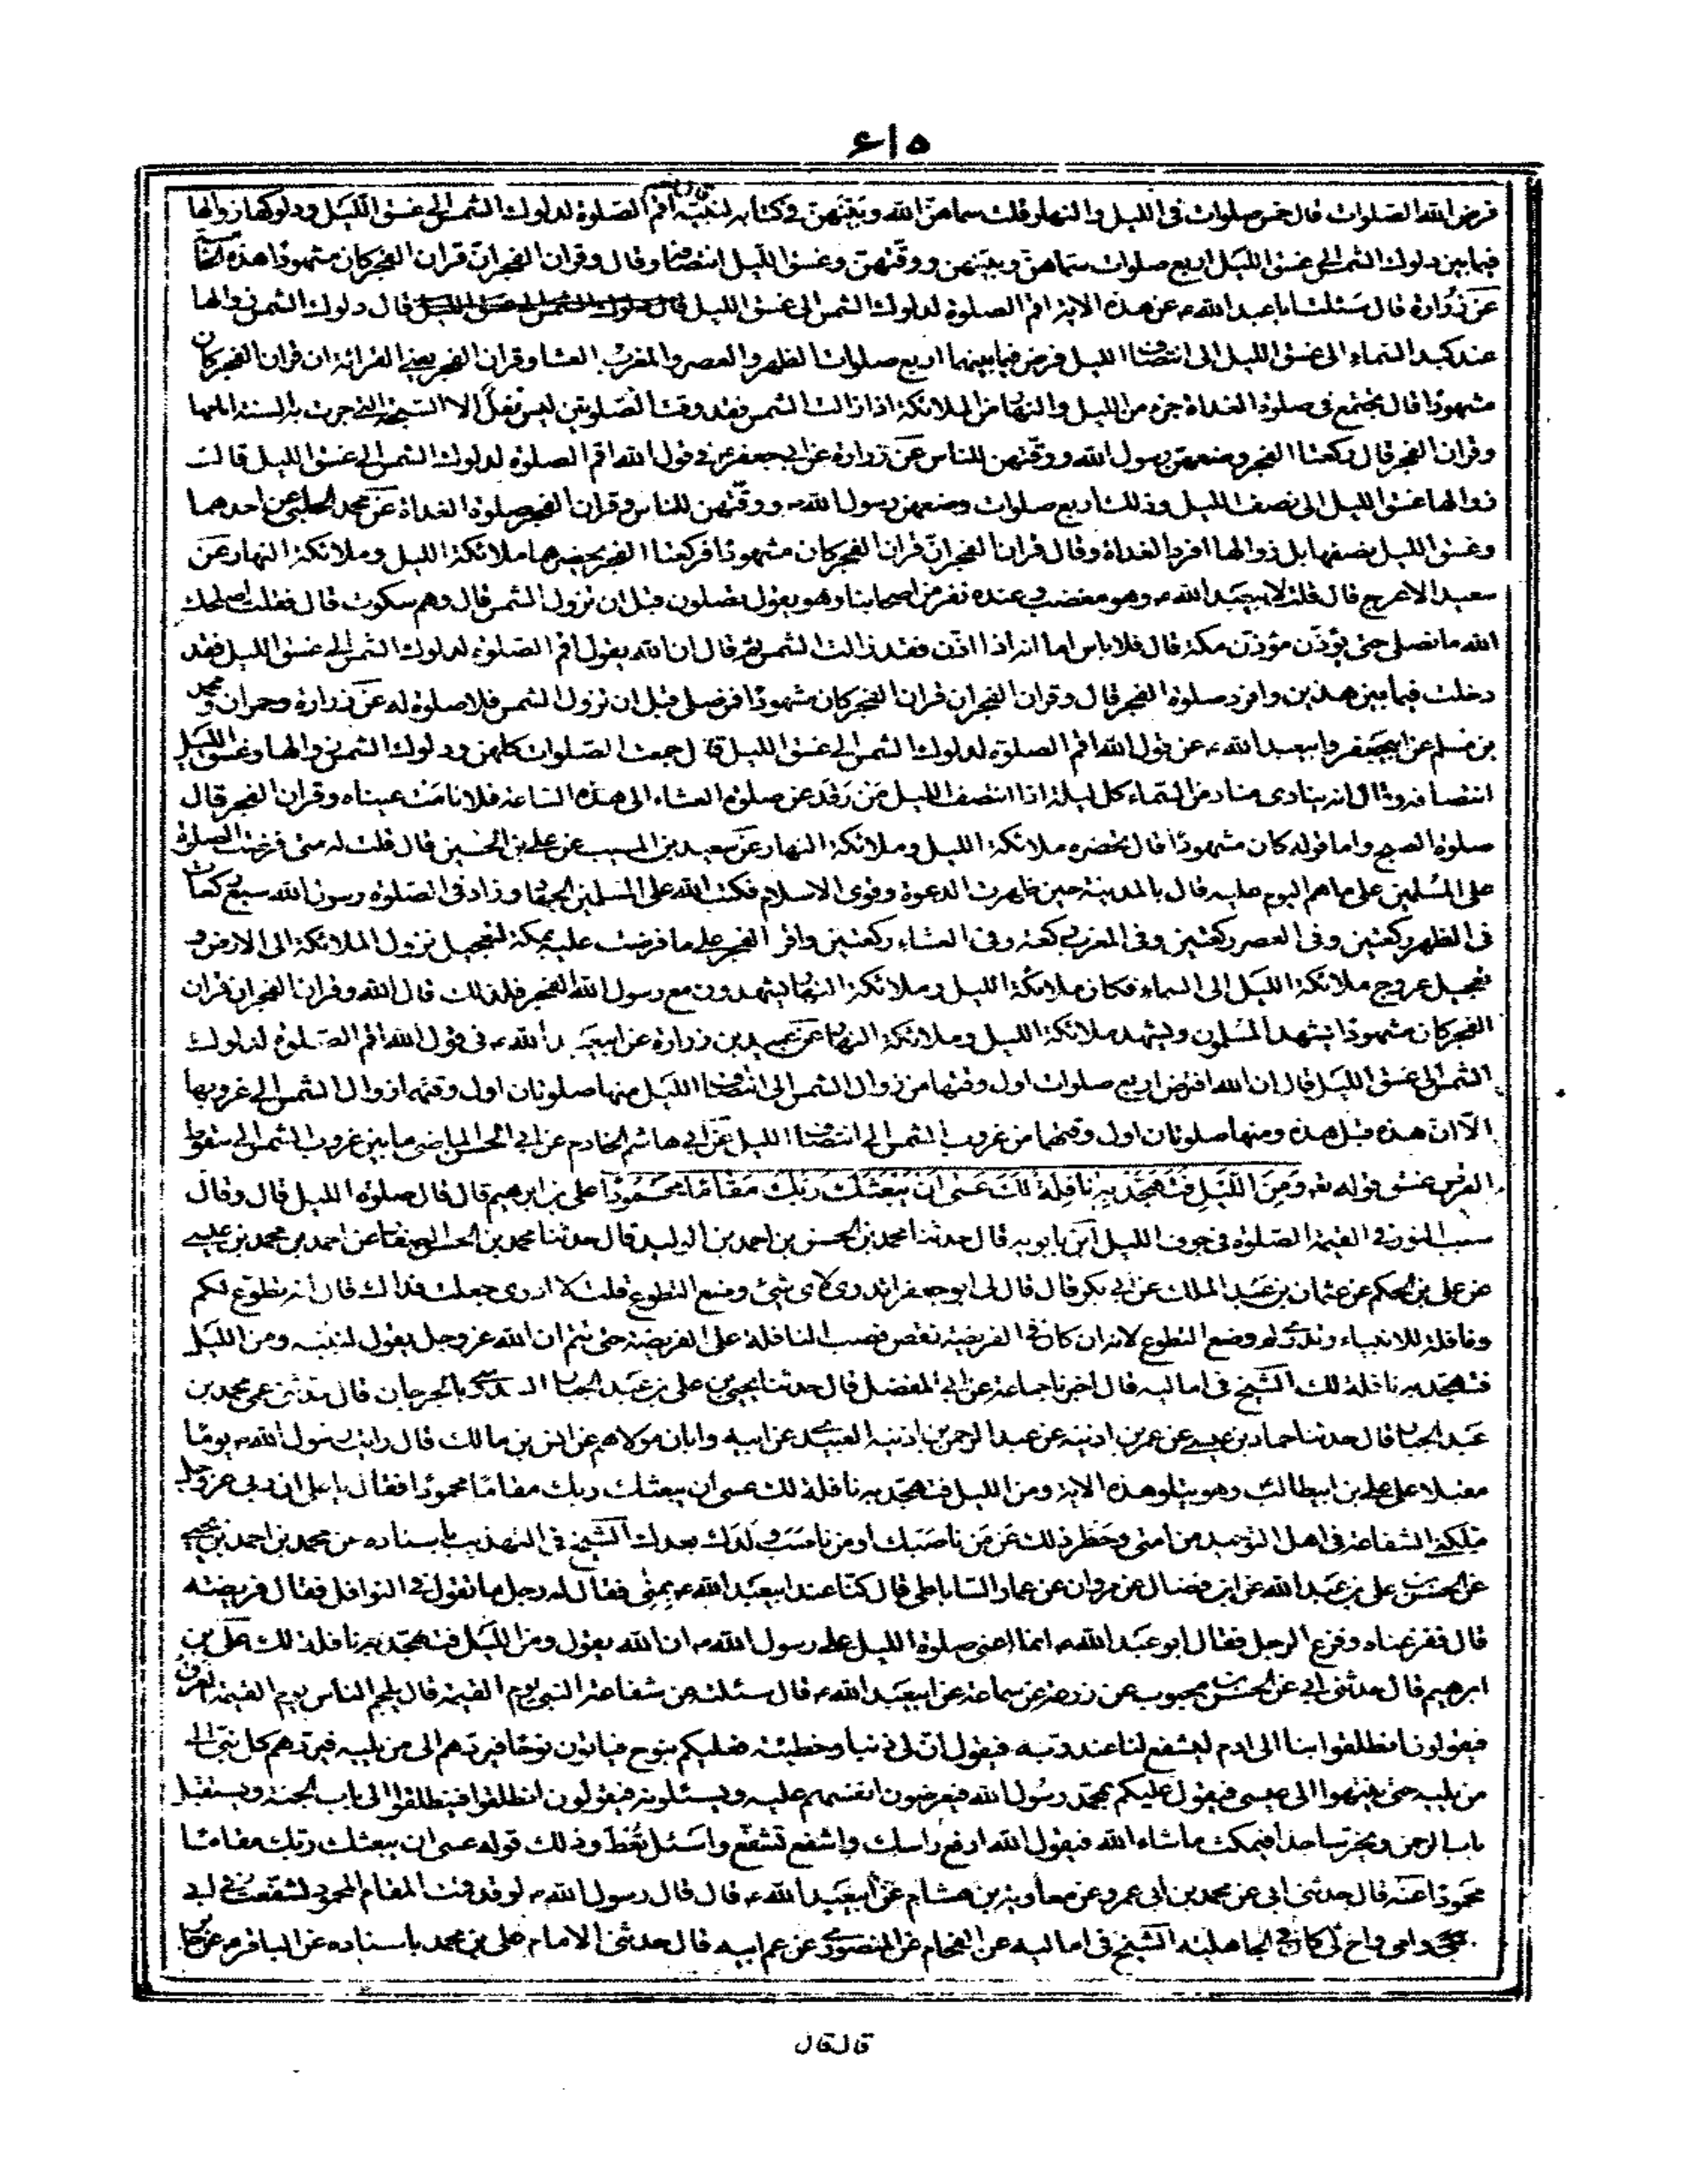 ٦١٥
فرض الله الصلوات قال خمس صلوات فى الليل والنهار قلت سماهن الله وبينهن فى كتابه لنبيه قال نعم اقم الصلوة لدلوك الشمس الى غسق الليل ودلوكها زوالها
فيما بين دلوك الشمس الى غسق الليل اربع صلوات سماهن وبينهن ووقتهن وغسق الليل انتصافه وقال وقران الفجر ان قران الفجر كان مشهودا هذه
عن زرارة قال سئلت ابا عبد الله ع عن هذه الاية اقم الصلوة لدلوك الشمس الى غسق الليل قال دلوك الشمس زوالها
عند كبد السماء الى غسق الليل الى انتصاف الليل فرض فيما بينهما اربع صلوات الظهر والعصر والمغرب العشا وقران الفجر يعنى القرائة ان قران الفجر كان
مشهودا قال يجتمع فى صلوة الغداة حرم من الليل والنهار من الملائكة اذا زالت الشمس فقد وقت الصلوتين ليس نفل الا السبحة التى جرت به السنة امامها
وقران الفجر قال ركعتا الفجر وضعهن رسول الله ووقتهن للناس عن زرارة عن ابى جعفر ع فى قول الله اقم الصلوة لدلوك الشمس الى غسق الليل قالت
زوالها غسق الليل الى نصف الليل وذلك اربع صلوات وضعهن رسول الله ص ووقتهن للناس وقران الفجر صلوة الغداة عن محمد الحلبى عن احدهما
وغسق الليل نصفها بل زوالها افرد الغداة وقال قران الفجر ان قران الفجر كان مشهودا فركعتا الفجر يحضرهما ملائكة الليل وملائكة النهار عن
سعيد الاعرج قال قلت لابيعبد الله ع وهو مغضب وعنده نفر من اصحابنا وهو يقول تصلون قبل ان تزول الشمس قال وهم سكوت قال فقلت اصلحك
الله ما نصلى حتى يؤذن مؤذن مكة قال فلا باس اما انه اذا اذن فقد زالت الشمس ثم قال ان الله يقول اقم الصلوة لدلوك الشمس الى غسق الليل فقد
دخلت فيما بين هذين وافرد صلوة الفجر قال وقران الفجر ان قران الفجر كان مشهودا فمن صلى قبل ان تزول الشمس فلا صلوة له عن زرارة وحمران ومحمد
بن مسلم عن ابيجعفر وابيعبد الله ع عن قول الله اقم الصلوة لدلوك الشمس الى غسق الليل قال جمعت الصلوات كلهن ودلوك الشمس زوالها وغسق الليل
انتصافه وقال انه ينادى مناد من السماء كل ليلة اذا انتصف الليل من رقد عن صلوة العشاء الى هذه الساعة فلا نامت عيناه وقران الفجر قال
صلوة الصبح واما قوله كان مشهودا قال تحضره ملائكة الليل وملائكة النهار عن سعيد بن المسيب عن على بن الحسين قال قلت له متى فرضت الصلوة
على المسلمين على ما هم اليوم عليه قال بالمدينة حين ظهرت الدعوة وقوى الاسلام فكتب الله على المسلمين الجهاد وزاد فى الصلوة رسول الله سبع ركعات
فى الظهر ركعتين وفى العصر ركعتين وفى المغرب ركعة وفى العشاء ركعتين واقر الفجر على ما فرضت عليه بمكة لتعجيل نزول الملائكة الى الارض و
تعجيل عروج ملائكة الليل الى السماء فكان ملائكة الليل وملائكة النهار يشهدون مع رسول الله الفجر فلذلك قال الله وقران الفجر ان قران
الفجر كان مشهودا يشهد المسلمون وليشهد ملائكة الليل وملائكة النهار عن عبيد بن زرارة عن ابيعبد الله ع فى قول الله اقم الصلوة لدلوك
الشمس الى غسق الليل قال ان الله افترض اربع صلوات اول وقتها من زوال الشمس الى انتصاف الليل منها صلوتان اول وقتهما زوال الشمس الى غروبها
الا ان هذه قبل هذه ومنها صلوتان اول وقتهما من غروب الشمس الى انتصاف الليل عن ابى هاشم الخادم عن ابى الحسن الماضى ما بين غروب الشمس الى سقوط
القرص غسق قوله ومن الليل فتهجد به نافلة لك عسى ان يبعثك ربك مقاما محمودا على بن ابرهيم قال قال صلوة الليل قال وقال
سبب النور فى القيمة الصلوة فى جوف الليل ابن بابويه قال حدثنا محمد بن الحسن بن احمد بن الوليد قال حدثنا محمد بن الحسن الصفار عن احمد بن محمد بن عيسى
عن على بن الحكم عن عثمان بن عبد الملك عن ابى بكر قال قال لى ابو جعفر اتدرى لاى شئ وضع التطوع قلت لا ادرى جعلت فداك قال انه تطوع لكم
ونافلة للانبياء وتدرى لم وضع التطوع لانه ان كان فى الفريضة نقص فصب النافلة على الفريضة حتى تتم ان الله عز وجل يقول لنبيه ومن الليل
فتهجد به نافلة لك الشيخ فى اماليه قال اخبرنا جماعة عن ابى المفضل قال حدثنا يحيى بن على بن عبد الجبار بالجرجان قال حدثنى عمى محمد بن
عبد الجبار قال حدثنا حماد بن عيسى عن عمر بن اذينة عن عبد الرحمن بن اذينه العبدى عن ابيه وابان مولاهم عن انس بن مالك قال رايت رسول الله ص يوما
مقبلا على على بن ابيطالب وهو يتلو هذه الاية ومن الليل فتهجد به نافلة لك عسى ان يبعثك ربك مقاما محمودا فقال يا على ان ربى عز وجل
ملكنى الشفاعة فى اهل التوحيد من امتى وحظر ذلك عن من ناصبك او من ناصب ولدك بعدك الشيخ فى التهذيب باسناده عن محمد بن احمد بن يحيى
عن الحسن بن على بن عبد الله عن ابن فضال عن مروان عن عمار الساباطى قال كنا عند ابيعبد الله ع بمنى فقال له رجل ما تقول فى النوافل فقال فريضة
قال ففزعناه وفزع الرجل فقال ابو عبد الله ع انما اعنى صلوة الليل على رسول الله ص ان الله يقول ومن الليل فتهجد به نافلة لك على بن
ابرهيم قال حدثنى ابى عن الحسن بن محبوب عن زرعة عن سماعة عن ابيعبد الله ع قال سئلته عن شفاعة النبى يوم القيمة قال يلجم الناس يوم القيمة العرق
فيقولون انطلقوا بنا الى ادم ليشفع لنا عند ربه فيقول ان لى ذنبا وخطيئة فعليكم بنوح فياتون نوحا فيردهم الى من يليه فيردهم كل نبى الى
من يليه حتى ينتهوا الى عيسى فيقول عليكم بمحمد رسول الله فيعرضون انفسهم عليه ويسئلونه فيقولون انطلقوا فينطلقوا الى باب الجنة ويستقبل
باب الرحمن ويخر ساجدا فيمكث ما شاء الله فيقول الله ارفع راسك واشفع تشفع واسئل تعط وذلك قوله عسى ان يبعثك ربك مقاما
محمودا عنه قال حدثنى ابى عن محمد بن ابى عمير وعن معاوية بن هشام عن ابيعبد الله ع قال قال رسول الله ص لو قد قمت المقام المحمود لشفعت فى ابى
وامى واخ لى كان فى الجاهلية الشيخ فى اماليه عن الفحام عن المنصورى عن عم ابيه قال حدثنى الامام على بن محمد باسناده عن الباقر ع عن
قال قال